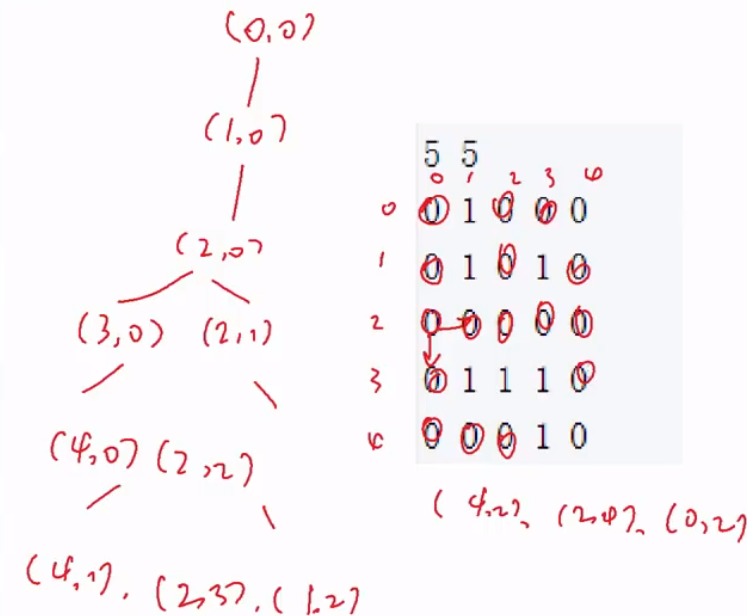 (0,0)
(1,0)
(2,0)
(3,0) (2,1)
(4,0) (2,2)
(4,1), (2,3), (1,2)
5 5
0 1 2 3 4
0 0 1 0 0 0
1 0 1 0 1 0
2 0 0 0 0 0
3 0 1 1 1 0
4 0 0 0 1 0
(4,2), (2,4), (0,2)